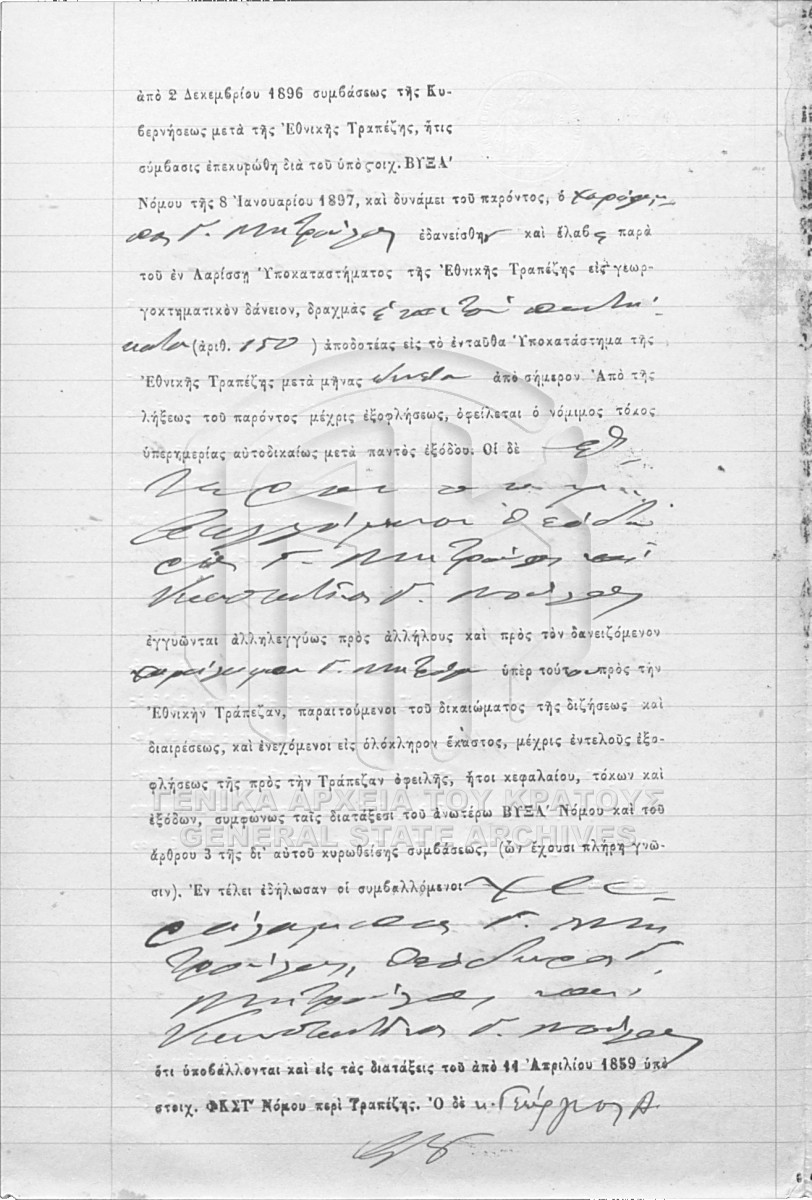 ἀπὸ 2 Δεκεμβρίου 1896 συμβάσεως τῆς Κυ-
βερνήσεως μετὰ τῆς Ἐθνικῆς Τραπέζης, ἥτις
σύμβασις ἐπεκυρώθη διὰ τοῦ ὑπὸ στοιχ. ΒΥΞΑ′
Νόμου τῆς 8 Ἰανουαρίου 1897, καὶ δυνάμει τοῦ παρόντος, ὁ
Γ. Μητρούλας ἐδανείσθη καὶ ἔλαβε παρὰ
τοῦ ἐν Λαρίσσῃ Ὑποκαταστήματος τῆς Ἐθνικῆς Τραπέζης εἰς γεωρ-
γοκτηματικὸν δάνειον, δραχμὰς ἑκατὸν πεντή-
κοντα (ἀριθ. 150 ) ἀποδοτέας εἰς τὸ ἐνταῦθα Ὑποκατάστημα τῆς
Ἐθνικῆς Τραπέζης μετὰ μῆνας ἀπὸ σήμερον. Ἀπὸ τῆς
λήξεως τοῦ παρόντος μέχρις ἐξοφλήσεως, ὀφείλεται ὁ νόμιμος τόκος
ὑπερημερίας αὐτοδικαίως μετὰ παντὸς ἐξόδου. Οἱ δὲ ἕτε
ροι
Θεόδω
ρος Γ. Μητρούλας καὶ
Κωνσταντῖνος Γ.
ἐγγυῶνται ἀλληλεγγύως πρὸς ἀλλήλους καὶ πρὸς τὸν δανειζόμενον
Χαράλαμπον Γ. ὑπὲρ τούτου πρὸς τὴν
Ἐθνικὴν Τράπεζαν, παραιτούμενοι τοῦ δικαιώματος τῆς διζήσεως καὶ
διαιρέσεως, καὶ ἐνεχόμενοι εἰς ὁλόκληρον ἕκαστος, μέχρις ἐντελοῦς ἐξο-
φλήσεως τῆς πρὸς τὴν Τράπεζαν ὀφειλῆς, ἤτοι κεφαλαίου, τόκων καὶ
ΓΕΝΙΚΑ ΑΡΧΕΙΑ ΤΟΥ ΚΡΑΤΟΥΣ
ἐξόδων, συμφώνως ταῖς διατάξεσι τοῦ ἀνωτέρω ΒΥΞΑ′ Νόμου καὶ τοῦ
GENERAL STATE ARCHIVES
ἄρθρου 3 τῆς δι' αὐτοῦ κυρωθείσης συμβάσεως, (ὧν ἔχουσι πλήρη γνῶ-
σιν). Ἐν τέλει ἐδήλωσαν οἱ συμβαλλόμενοι Χα
ράλαμπος Γ. Μη
τρούλας, Θεόδωρος Γ.
Μητρούλας, καὶ
Κωνσταντῖνος Γ.
ὅτι ὑποβάλλονται καὶ εἰς τὰς διατάξεις τοῦ ἀπὸ 11 Ἀπριλίου 1859 ὑπὸ
στοιχ. ΦΚΣΤ′ Νόμου περὶ Τραπέζης. Ὁ δὲ κ. Γεώργιος Α.